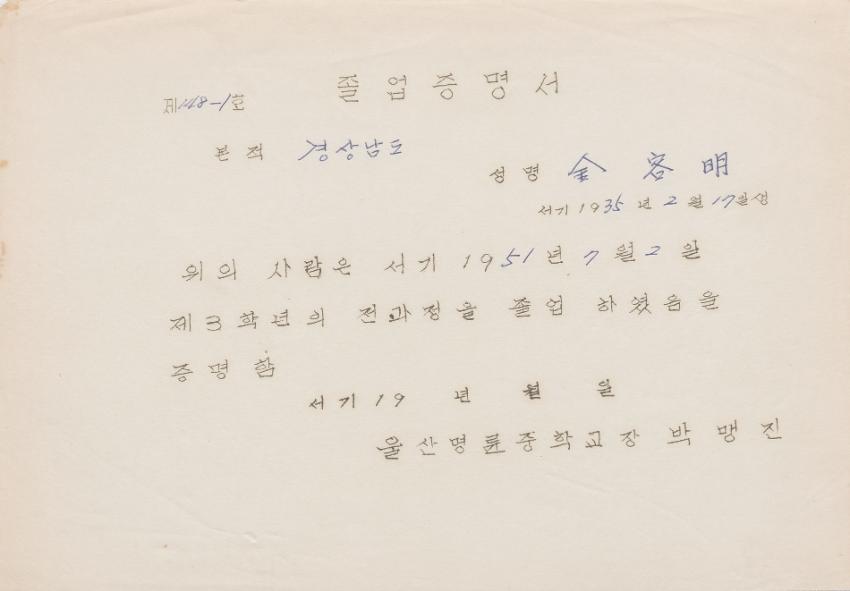 졸업증명서
제148-1호
본적 경상남도
성명 金容明
서기 1935년 2월 17일생
위의 사람은 서기 1951년 7월 2일
제3학년의 전과정을 졸업 하였음을
증명함
서기 19 년 월 일
울산명륜중학교장 박맹진